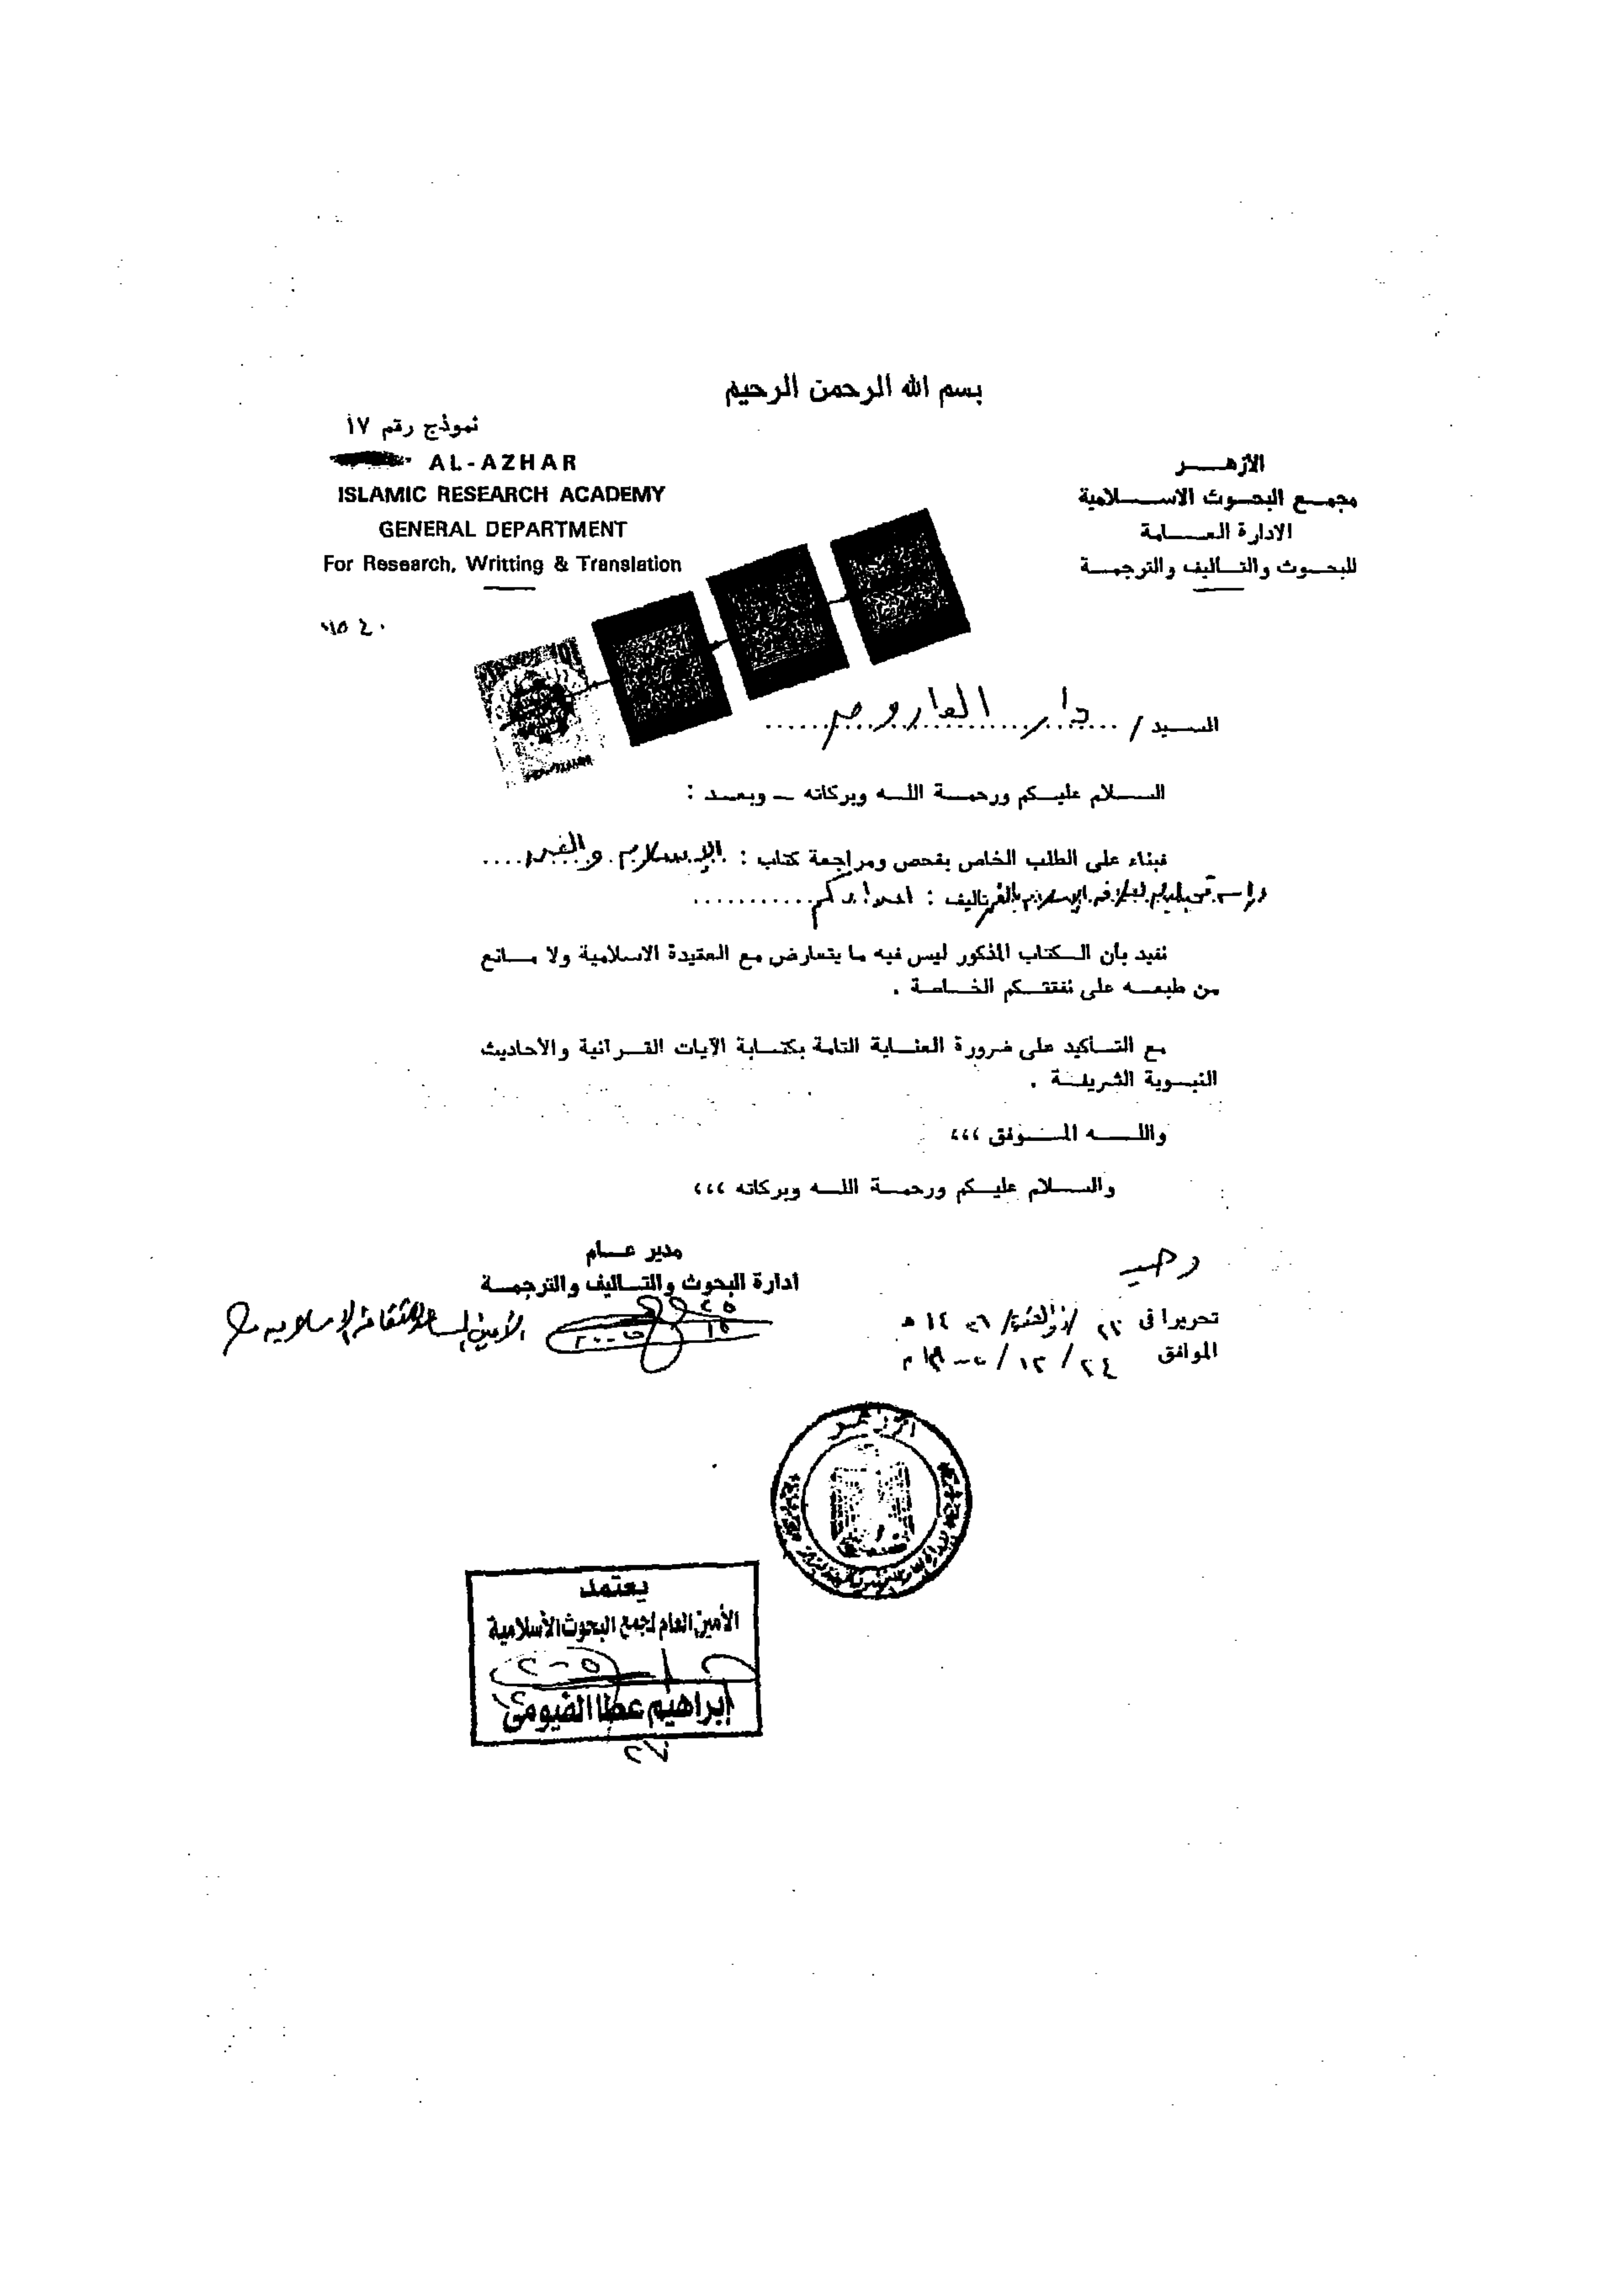 بسم الله الرحمن الرحيم
نموذج رقم ١٧
AL-AZHAR
ISLAMIC RESEARCH ACADEMY
GENERAL DEPARTMENT
For Research, Writting & Translation
الأزهـــر
مجمـع البحـوث الاســـلامية
الادارة العـــامة
للبحـوث والتـاليف والترجمـة
السـيد / دار
الســـلام عليـكم ورحمـة اللـه وبركاته ــ وبعـد :
فبناء على الطلب الخاص بفحص ومراجعة كتاب : الإسلام والغرب
تأليف : أحمد
نفيد بأن الـكتاب المذكور ليس فيه ما يتعارض مع العقيدة الاسلامية ولا مـانع
من طبعـه على نفقتـكم الخـاصة .
مع التـاكيد على ضرورة العنـاية التامة بكتـابة الآيات القـرآنية والأحاديث
النبـوية الشريفـة .
واللـــه المـــوفق ،،،
والســـلام عليـكم ورحمـة اللـه وبركاته ،،،
مدير عـــام
ادارة البحوث والتـاليف والترجمـة
الأمين المساعد للثقافة الإسلامية
تحريرا فى ٢٢ / ذو القعدة / ١٤٢٦ هـ
الموافق ٢٤ / ١٢ / ٢٠٠٥ م
الأزهر
يعتمد
الأمين العام لمجمع البحوث الأسلامية
إبراهيم عطا الفيومى